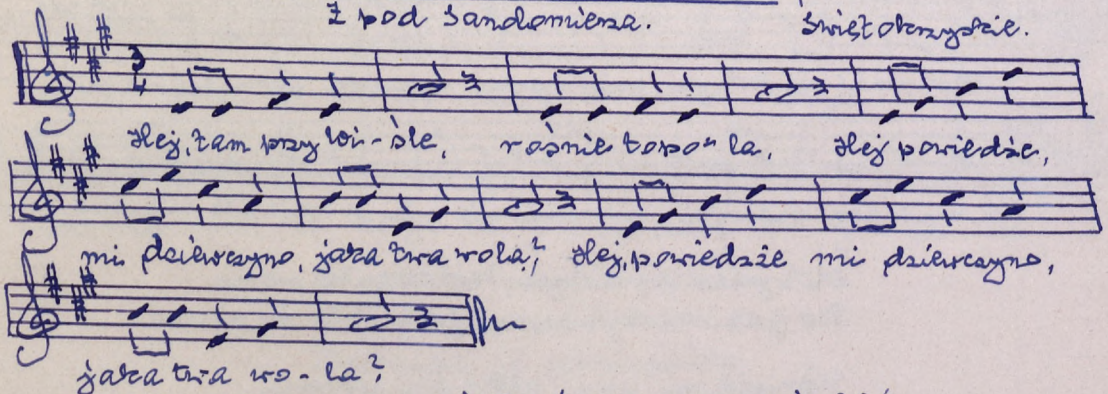 Z pod Sandomierza. Świętokrzyskie.
3
4
Hej, tam przy Wi-śle, rośnie topo-la. Hej powiedże,
mi dziewczyno, jaka twa wola?, Hej, powiedzże mi dziewczyno,
jaka twa wo-la?,